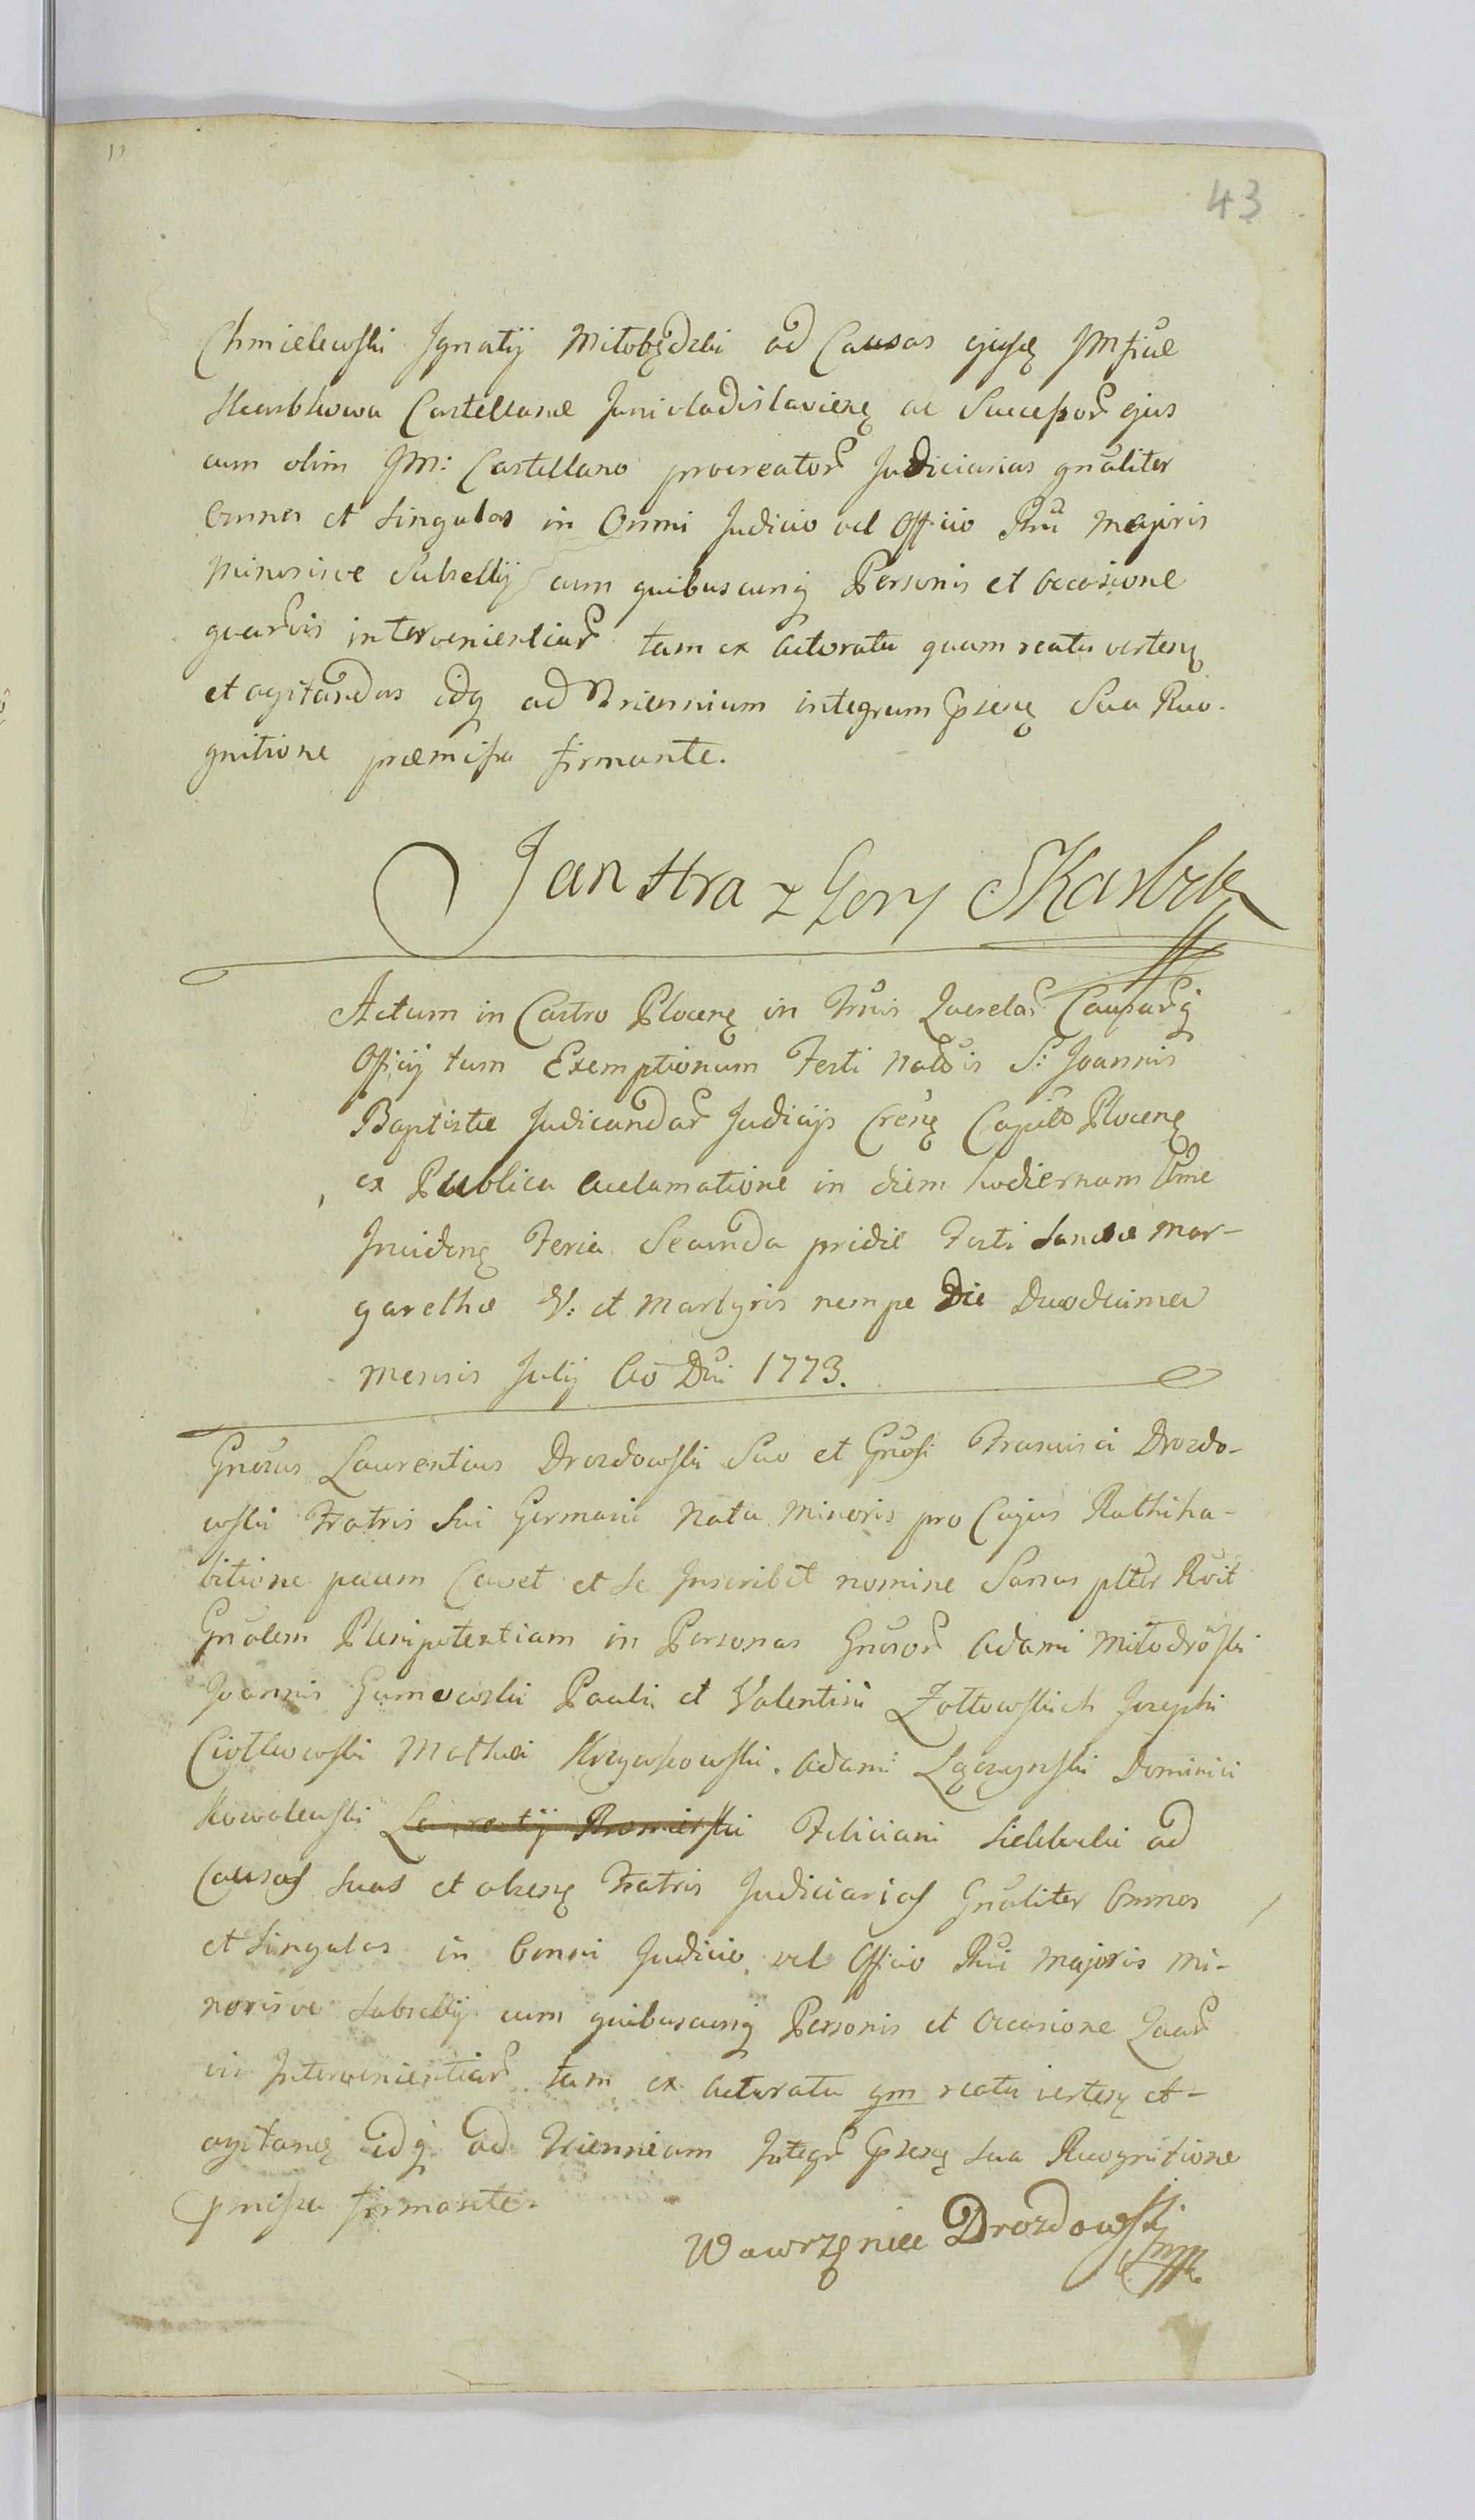 43
Chmielewski Ignatij Miłobędzki ad Causas ejusq JMficæ
Skarbkowa Castellanæ Junivladislavienę ac Successor ejus
cum olim JM: Castellano procreator Judiciarias gnaliter
Omnes et Singulas in Omni Judicio vel Officio Rni Majoris
Minorisve Subsellij cum quibuscunq Personis et Occasione
quarvis intervenientiar tam ex Actoratu quam reatu vertenę
et agitandas idq ad Triennium integrum pnsenę Sua Reco-
gnitione præmissa firmante.
Jan Hra z Gory Skarbek
Actum in Castro Plocenę in Trnis Querelar Causarq
Officij tum Exemptionum Festi Natvis S: Joannis
Baptistæ Judicandar Judicijs Crenę Capitlo Plocenę
ex Publica Acclamatione in diem hodiernam
Incidenę Feria Secunda pridie Festi Sanctæ Mar-
garethæ V: et Martyris nempe Die Duodecima
Mensis Julij Ao Dni 1773.
Gnosus Laurentius Drozdowski Suo et Gnosi Francisci Drozdo-
wski Fratris Sui Germani Natu Minoris pro Cujus Rathiha-
bitione pacem Cavet et Se Inscribit nomine Sanus pleer Rcoit
Gnalem Plenipotentiam in Personas Gnosor Adami Miłodroski
Joannis Gumowski Pauli et Valentini Zołtowskich Josephi
Ciołkowski Mathæi Krzywkowski. Adami Łączynski Dominici
Kowalewski Laurentij Promierski Feliciani Sieklucki ad
Causas Suas et absenę Fratris Judiciarias Gnaliter Omnes
et Singulas in Omni Judicio vel Officio Rni Majoris Mi-
norisve Subsellij cum quibuscunq Personis et Occasione Quar
vis Intervenientiar tam ex Actoratu qm reatu vertenę et
agitanę idq ad Triennium Integr pnsenę Sua Recognitione
pmissa firmante.
Wawrzęniec Drozdowski mpp.